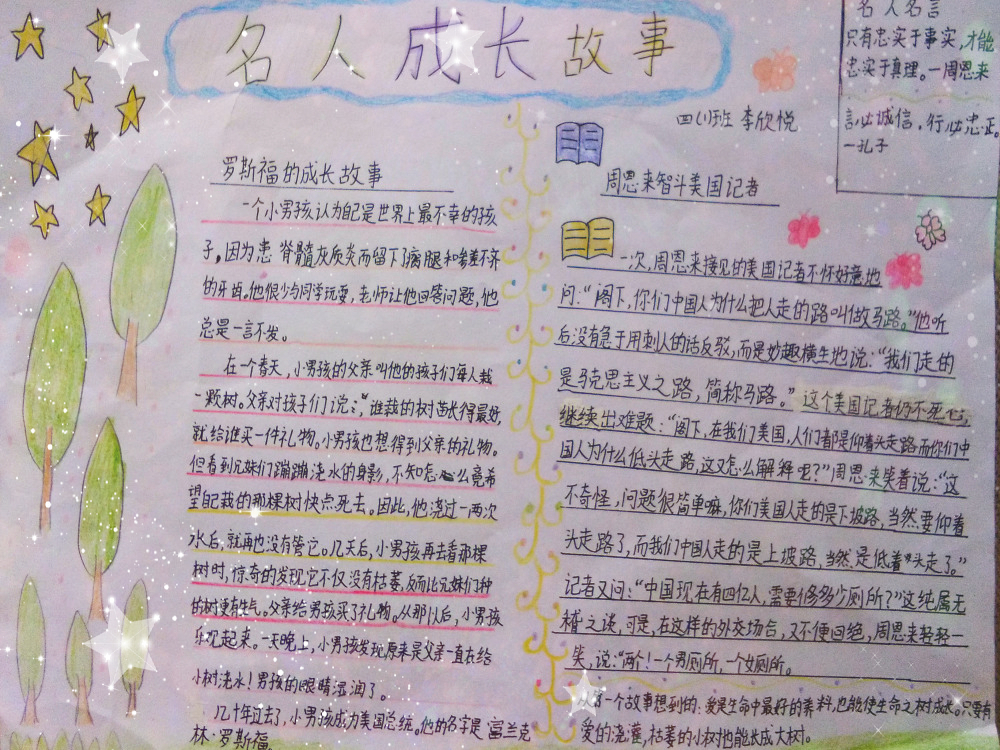 名人成长故事
名人名言
只有忠实于事实,才能
忠实于真理。一周恩来
言必诚信,行必忠正。
一孔子
四(1)班 李欣悦
罗斯福的成长故事
一个小男孩认为自己是世界上最不幸的孩
子,因为患脊髓灰质炎而留下了瘸腿和参差不齐
的牙齿。他很少与同学玩耍,老师让他回答问题,他
总是一言不发。
在一个春天,小男孩的父亲叫他的孩子们每人栽
一颗树。父亲对孩子们说:“谁栽的树苗长得最好,
就给谁买一件礼物。小男孩也想得到父亲的礼物。
但看到兄妹们蹦蹦浇水的身影,不知怎么竟希
望自己栽的那棵树快点死去。因此,他浇过一两次
水后,就再也没有管它。几天后,小男孩再去看那棵
树时,惊奇的发现它不仅没有枯萎,反而比兄妹们种
的树更有生气。父亲给男孩买了礼物。从那以后,小男孩
乐观起来。一天晚上,小男孩发现原来是父亲一直在给
小树浇水!男孩的眼睛湿润了。
几十年过去了,小男孩成为美国总统。他的名字是富兰克
林·罗斯福。
周恩来智斗美国记者
一次,周恩来接见的美国记者不怀好意地
问:“阁下,你们中国人为什么把人走的路叫做马路。”他听
后没有急于用刺人的话反驳,而是妙趣横生地说:“我们走的
是马克思主义之路,简称马路。”这个美国记者仍不死心,
继续出难题:“阁下,在我们美国,人们都是仰着头走路而你们中
国人为什么低头走路,这又怎么解释呢?”周恩来笑着说:“这
不奇怪,问题很简单嘛,你们美国人走的是下坡路,当然要仰着
头走路了,而我们中国人走的是上坡路,当然是低着头走了。”
记者又问:“中国现在有四亿人,需要修多少厕所?”这纯属无
稽之谈,可是,在这样的外交场合,又不便回绝,周恩来轻轻一
笑,说:“两个!一个男厕所,一个女厕所。
一个故事想到的:爱是生命中最好的养料,也能使生命之树成长。只要有
爱的浇灌,枯萎的小树也能长成大树。